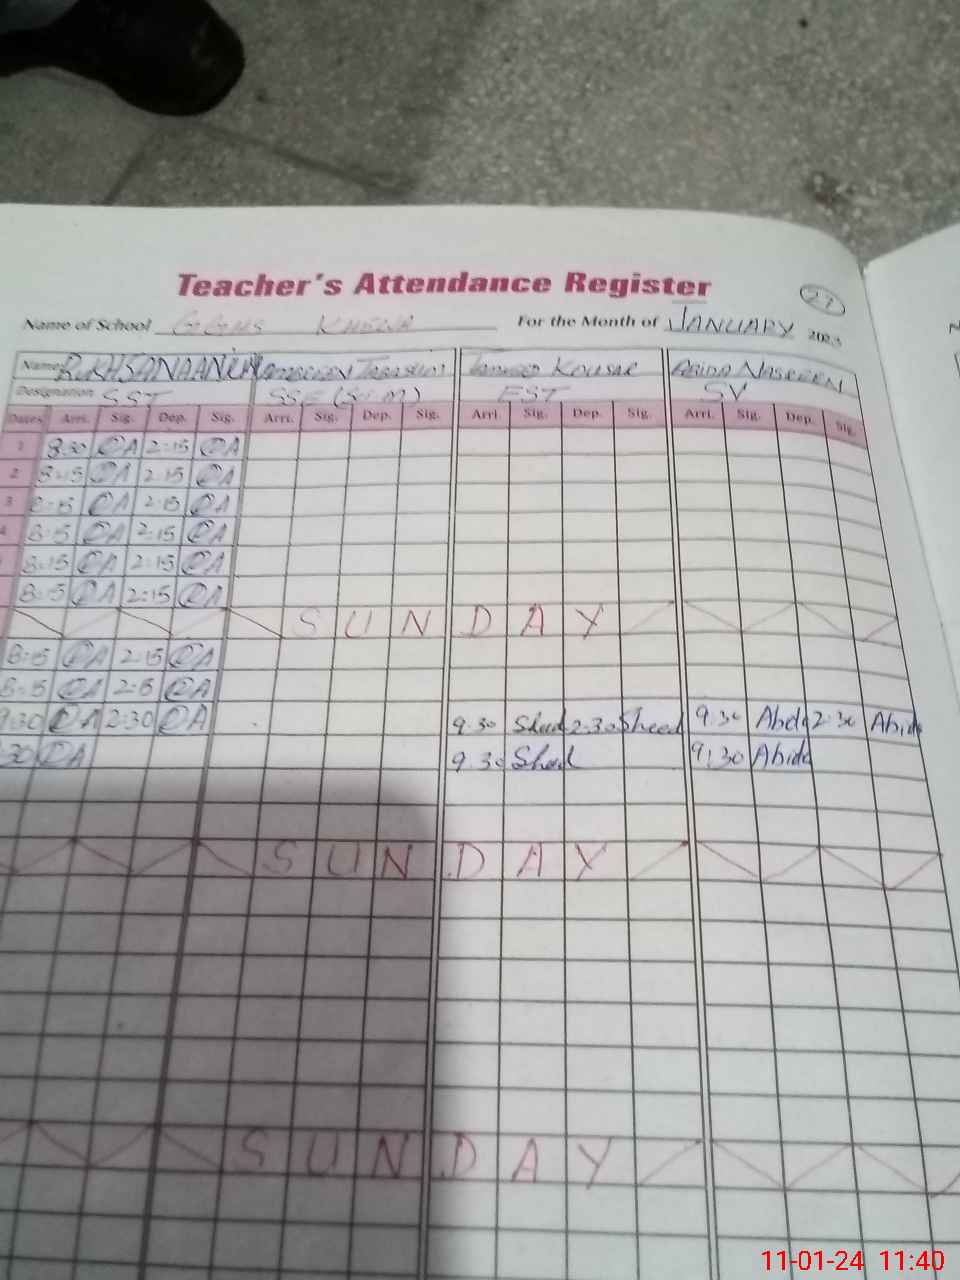 Teacher's Attendance Register
27
Name of School GGHS For the Month of JANUARY 202
Name RUKHSANA ANJUM AMBREEN TABASSUM KOUSAR ABIDA NASREEN
Designation SST SSE (Sci M) EST SV
Dates Arri. Sig. Dep. Sig. Arri. Sig. Dep. Sig. Arri. Sig. Dep. Sig. Arri. Sig. Dep. Sig.
1 8:30 RA 2:15 RA
2 8:15 RA 2:15 RA
3 8:15 RA 2:15 RA
4 8:15 RA 2:15 RA
8:15 RA 2:15 RA
8:15 RA 2:15 RA
SUNDAY
8:15 RA 2:15 RA
8:15 RA 2:15 RA
9:30 RA 2:30 RA 9:30 2:30 9:30 Abida 2:30 Abida
30 RA 9:30 9:30 Abida
SUNDAY
SUNDAY
11-01-24 11:40